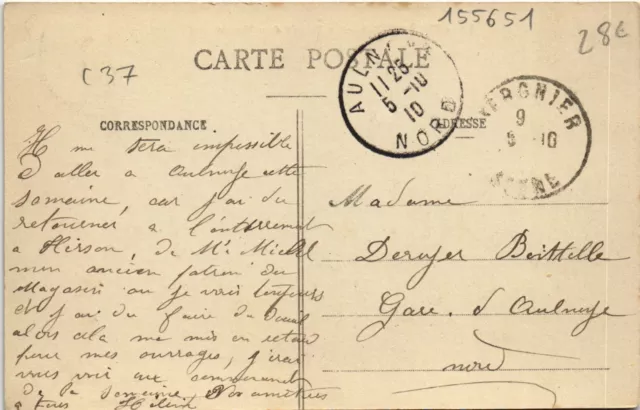 155651
28€
C37
CARTE POSTALE
AULN
11 25
5 -10
10
NORD
TERGNIER
9
5 -10
AISNE
CORRESPONDANCE
ADRESSE
Il me sera impossible
d'aller a Aulnoye cette
semaine, car j'ai du
retourner a l'enterrement
a Hirson, de Mr Michel
mon ancien patron du
Magasin ou je vais toujours
et j'ai du faire du deuil
alors cela me mis en retard
pour mes ouvrages, j'irai
vous voir au commencement
de la semaine,
a tous
Madame
Beithelle
Gare d'Aulnoye
nord